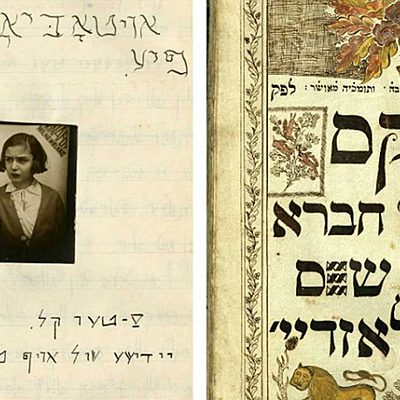 אויטאָביאָ
פיע.
5-טער קל.
יידישע שול אויף
ותומכיה מאושר: לפק
חברא
ש״ס
לאזדיי׳